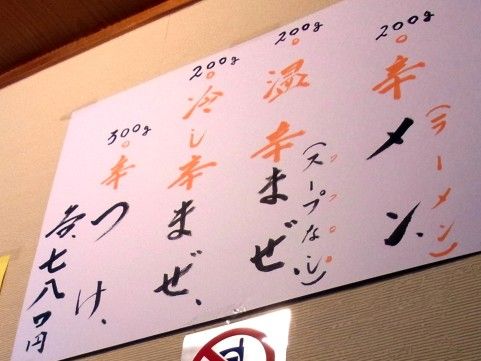 200g
○辛メン、
(ラーメン)
200g
○温辛まぜ、
(スープなし)
200g
○冷し辛まぜ、
300g
○辛つけ、
各、七八〇円